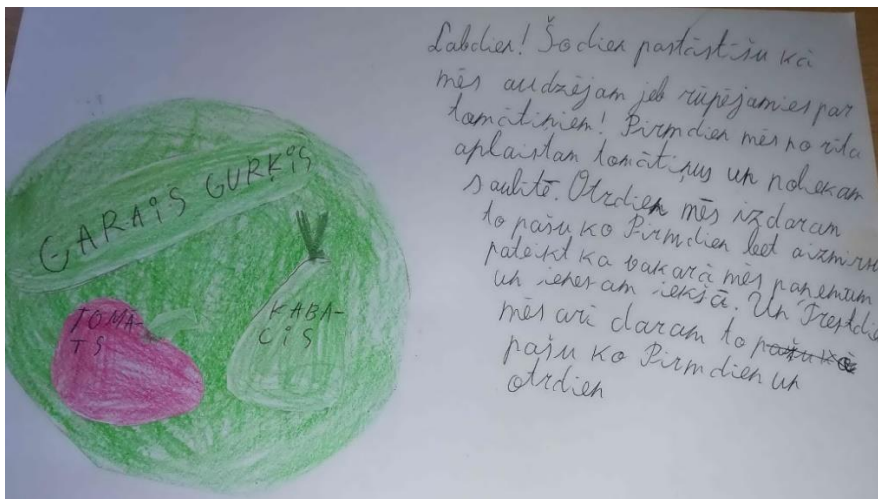 GARAIS GURĶIS
TOMA-
TS
KABA-
CIS
Labdien! Šodien pastāstīšu kā
mēs audzējam jeb rūpējamies par
tomātiņiem! Pirmdien mēs no rīta
aplaistam tomātiņus un noliekam
saulītē. Otrdien mēs izdaram
to pašu ko Pirmdien bet aizmirsu
pateikt ka vakarā mēs paņemam
un ienesam iekšā. Un Trešdien
mēs arī daram to pašu ko
pašu ko Pirmdien un
otrdien